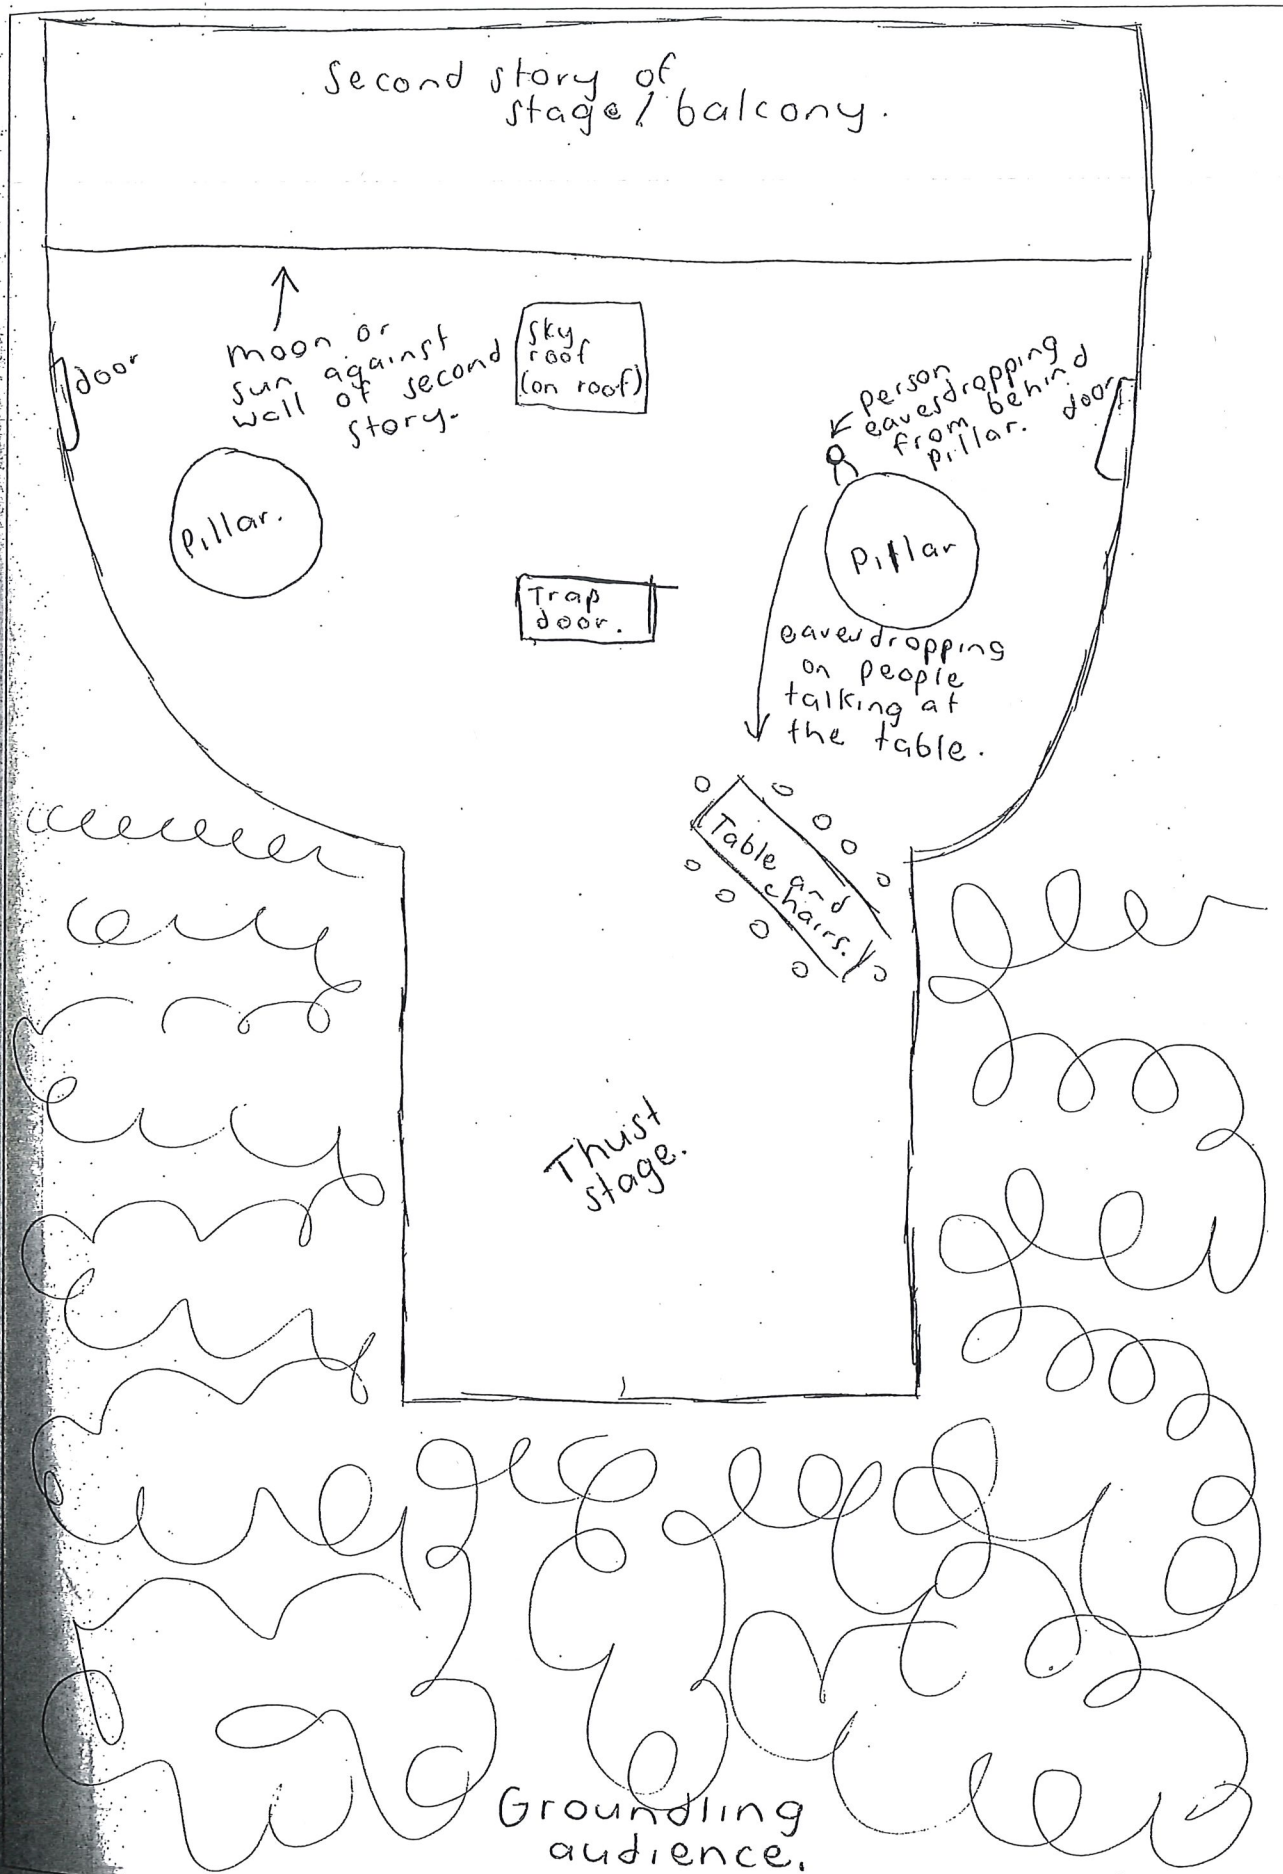 Second story of
stage / balcony.
moon or
sun against
wall of second
story.
door
sky
roof
(on roof)
person
eavesdropping
from behind
pillar.
door
Pillar.
Pillar
Trap
door.
eavesdropping
on people
talking at
the table.
Table and
chairs.
Thust
stage.
Groundling
audience.